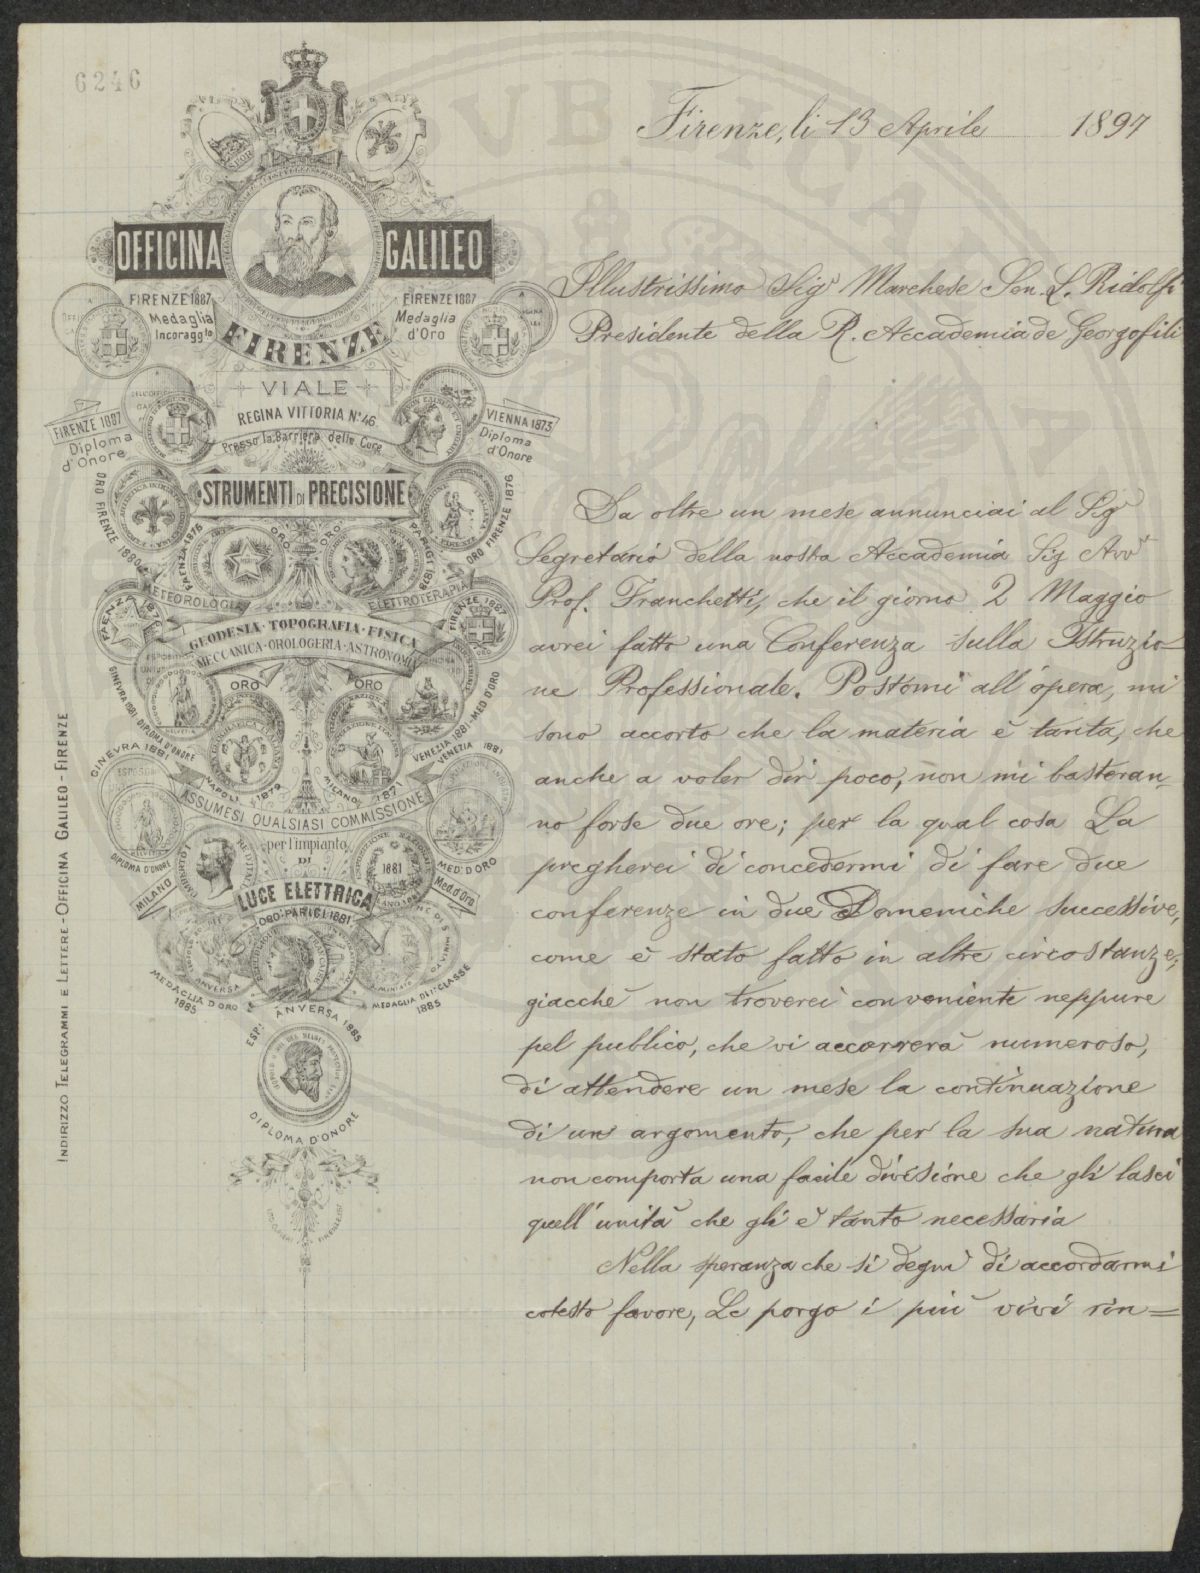 6246
Firenze, li 13 Aprile 1897
OFFICINA GALILEO
FIRENZE 1887
Medaglia
Incoragg.to
FIRENZE 1887
Medaglia
d'Oro
FIRENZE
VIALE
REGINA VITTORIA No. 46
Presso la Barriera delle Cure
FIRENZE 1887
Diploma
d'Onore
VIENNA 1873
Diploma
d'Onore
STRUMENTI DI PRECISIONE
ORO FIRENZE 1880
FAENZA 1875
ORO
ORO
PARIGI 1878
ORO FIRENZE 1876
METEOROLOGIA
ELETTROTERAPIA
FAENZA
FIRENZE 1887
GEODESIA · TOPOGRAFIA · FISICA
MECCANICA · OROLOGERIA · ASTRONOMIA
GINEVRA 1881 DIPLOMA D'ONORE
ORO
ORO
VENEZIA 1881 - MED. D'ORO
GINEVRA 1881
NAPOLI 1879
MILANO 1871
VENEZIA 1881
ASSUMESI QUALSIASI COMMISSIONE
per l'impianto
DI
LUCE ELETTRICA
DIPLOMA D'ONORE
MED. D'ORO
MILANO
1881
Med. d'Oro
ORO PARIGI 1881
ANVERSA
MEDAGLIA D'ORO
1885
MEDAGLIA DI 1a CLASSE
1885
ESP. ANVERSA 1885
DIPLOMA D'ONORE
INDIRIZZO TELEGRAMMI E LETTERE - OFFICINA GALILEO - FIRENZE
Illustrissimo Sigr Marchese Sen. L. Ridolfi
Presidente della R. Accademia de Georgofili
Da oltre un mese annunciai al Sigr
Segretario della nostra Accademia Sig Avvt
Prof. Franchetti, che il giorno 2 Maggio
avrei fatto una Conferenza sulla Istruzio-
ne Professionale. Postomi all'opera, mi
sono accorto che la materia è tanta, che
anche a voler dir poco, non mi basteran-
no forse due ore; per la qual cosa La
pregherei di concedermi di fare due
conferenze in due Domeniche successive,
come è stato fatto in altre circostanze,
giacchè non troverei conveniente neppure
pel publico, che vi accorrerà numeroso,
di attendere un mese la continuazione
di un argomento, che per la sua natura
non comporta una facile divisione che gli lasci
quell'unità che gli è tanto necessaria
Nella speranza che si degni di accordarmi
cotesto favore, Le porgo i più vivi rin=